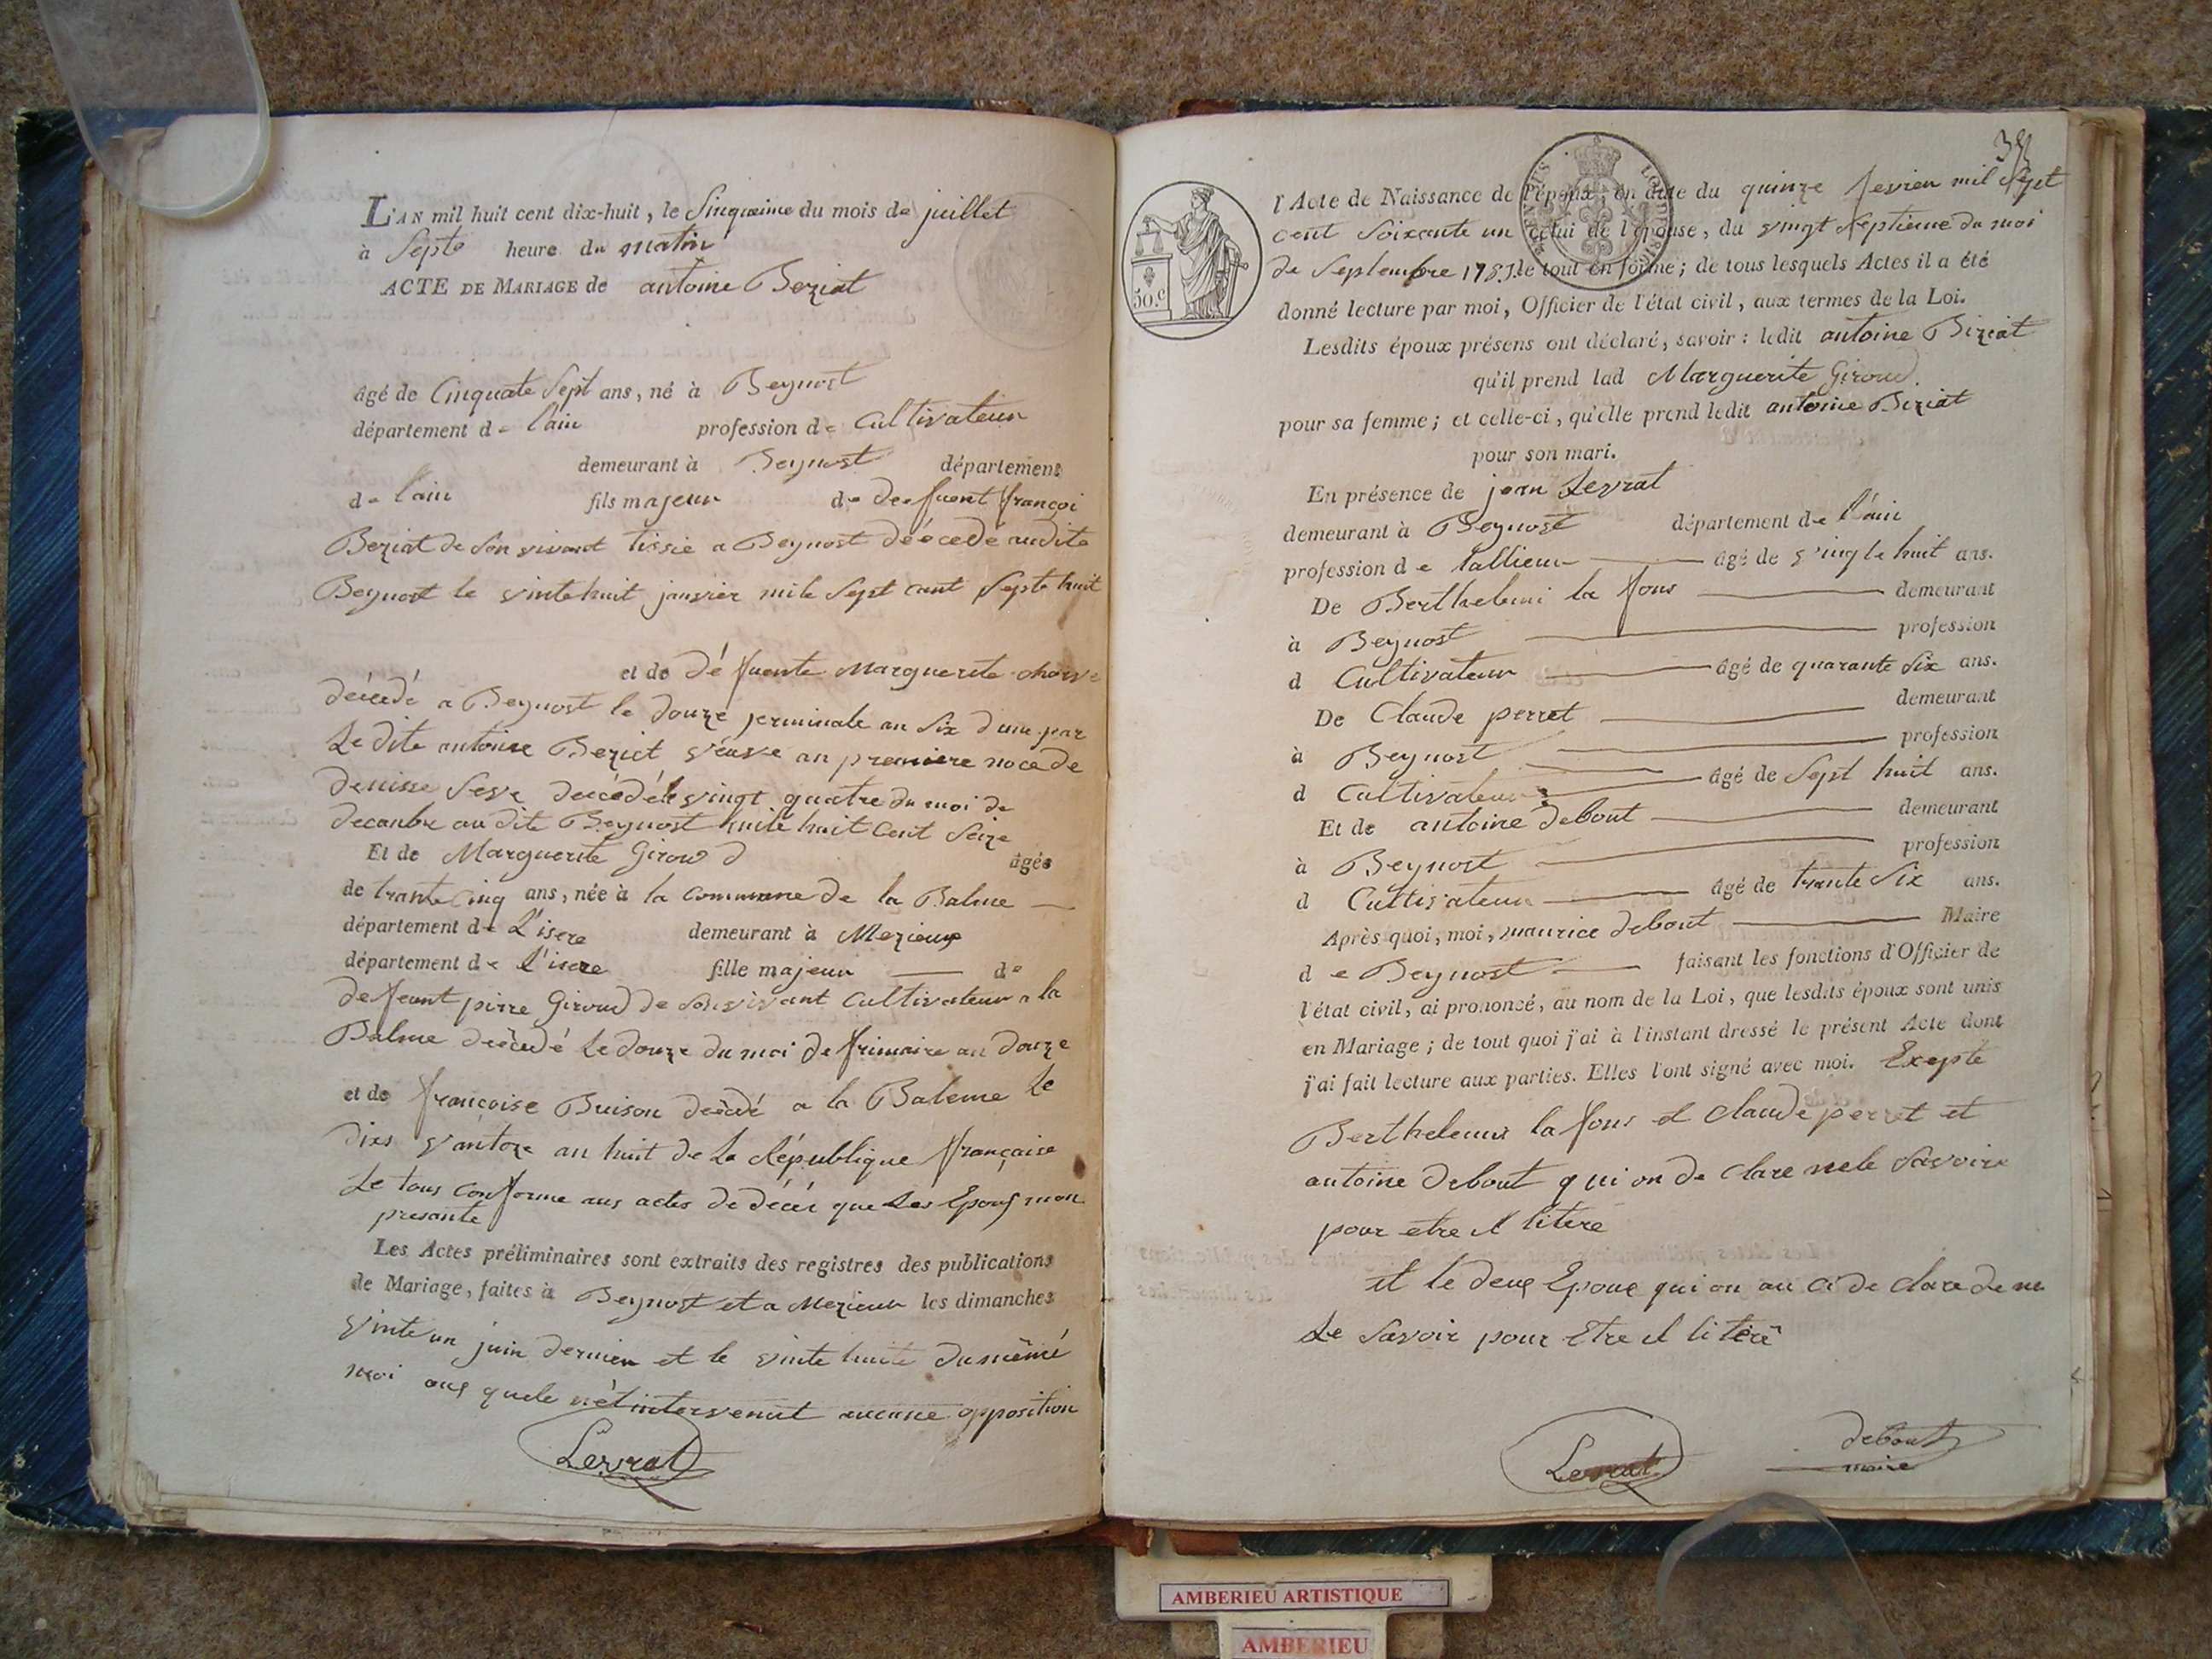 L'AN mil huit cent dix-huit, le Sinquieme du mois de juillet
à Septe heure du matin
ACTE DE MARIAGE de antoine Beziat
âgé de Cinquate Sept ans, né à Beynost
département de l'ain profession de Cultivateur
demeurant à Beynost département
de l'ain fils majeur de deefuent françoi
Beziat de Son vivant tissie a Beynost déécedé audite
Beynost le vintehuit janvier mile Sept cent Septe huit
et de défuente Marguerite
décedé a Beynost le douze jerminale an Six d'une par
Le dite antoine Beziet veuve an premiere noce de
denisse Seve decédé le vingt quatre du moi de
decanbre au dite Beynost mile huit Cent Seize
Et de Marguerite Giroud âgée
de trante Cinq ans, née à la commune de la Balme
département de L'isere demeurant à Mezieux
département de L'isere fille majeur de
defeunt pirre Giroud de Son vivant Cultivateur a la
Balme decédé Le douze du moi de frimaire an douze
et de françoise Buison decédé a la Baleme Le
dixs vantoze an huit de La République française
Le tous Conforme aus actes de décéi que Les Epous mon
presante
Les Actes préliminaires sont extraits des registres des publications
de Mariage, faites à Beynost et a Mezieux les dimanches
vinte un juin dernier et le vinte huite du même
moi aus quele n'et intervenut aucune opposition
Levrat
l'Acte de Naissance de l'époux, en date du quinze fevrier mil Sept
cent Soixante un celui de l'épouse, du vingt Septieme du moi
de Septembre 1783 le tout en forme; de tous lesquels Actes il a été
50.c
donné lecture par moi, Officier de l'état civil, aux termes de la Loi.
Lesdits époux présens ont déclaré, savoir: ledit antoine Biziat
qu'il prend lad Marguerite Giroud.
pour sa femme; et celle-ci, qu'elle prend ledit antoine Beziat
pour son mari.
En présence de jean Levrat
demeurant à Beynost département de l'ain
profession de tallieur âgé de vingte huit ans.
De Berthelemi la fons demeurant
à Beynost profession
d Cultivateur âgé de quarante Six ans.
De Claude perret demeurant
à Beynost profession
d Cultivateur âgé de Sept huit ans.
Et de antoine debout demeurant
à Beynost profession
d Cultivateur âgé de trante Six ans.
Après quoi, moi, maurice debout Maire
de Beynost faisant les fonctions d'Officier de
l'état civil, ai prononcé, au nom de la Loi, que lesdits époux sont unis
en Mariage; de tout quoi j'ai à l'instant dressé le présent Acte dont
j'ai fait lecture aux parties. Elles l'ont signé avec moi. Exepte
Berthelemi la fons et Claude perret et
antoine debout qui on de clare nele Savoire
pour etre il litere
et le deux Epoux qui on au ci de clare de ne
Le Savoir pour Etre il literé
Levrat debout
maire
AMBERIEU ARTISTIQUE
AMBERIEU